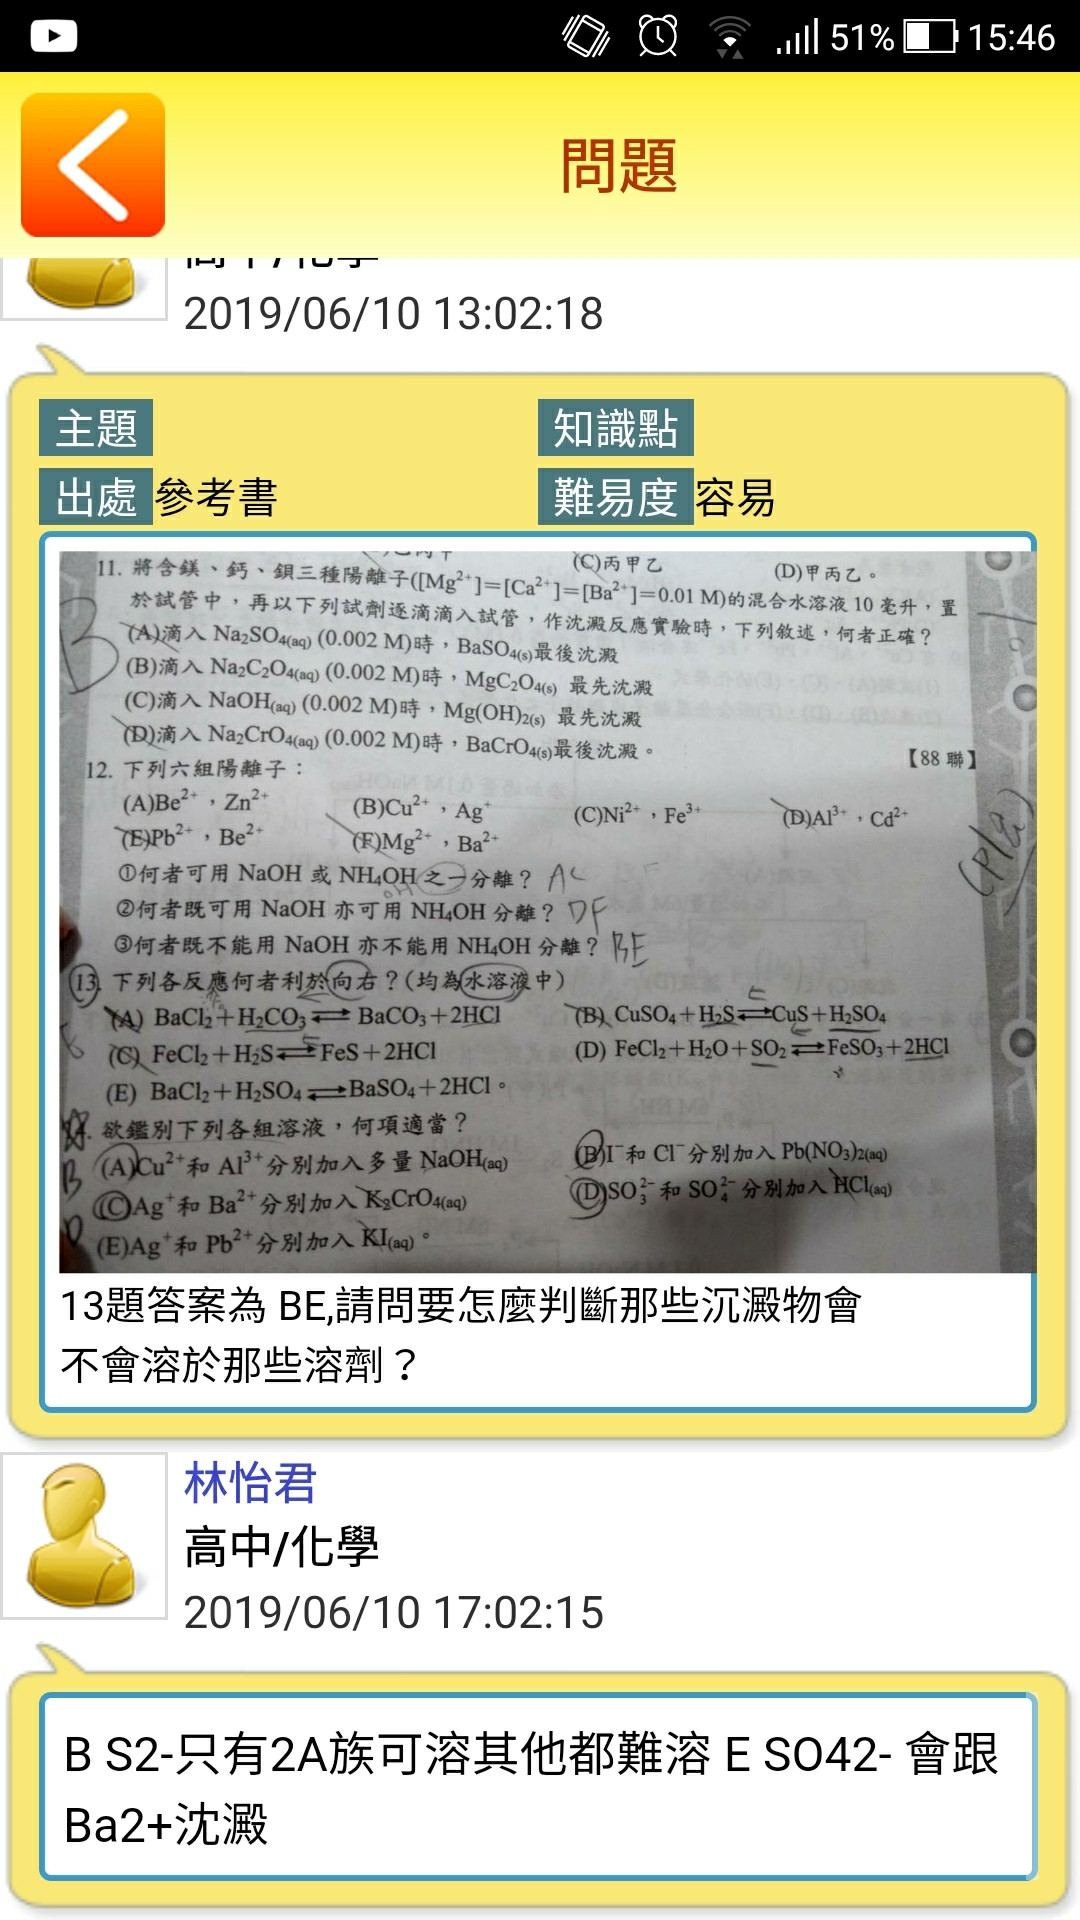 51% 15:46
問題
高中/化學
2019/06/10 13:02:18
主題 知識點
出處 參考書 難易度 容易
(C)丙甲乙 (D)甲丙乙。
11. 將含鎂、鈣、鋇三種陽離子([Mg²⁺]=[Ca²⁺]=[Ba²⁺]=0.01 M)的混合水溶液 10 毫升，置
於試管中，再以下列試劑逐滴滴入試管，作沈澱反應實驗時，下列敘述，何者正確？
(A)滴入 Na₂SO₄(aq) (0.002 M)時，BaSO₄(s)最後沈澱
(B)滴入 Na₂C₂O₄(aq) (0.002 M)時，MgC₂O₄(s) 最先沈澱
(C)滴入 NaOH(aq) (0.002 M)時，Mg(OH)₂(s) 最先沈澱
(D)滴入 Na₂CrO₄(aq) (0.002 M)時，BaCrO₄(s)最後沈澱。
【88 聯】
B
12. 下列六組陽離子：
(A)Be²⁺，Zn²⁺ (B)Cu²⁺，Ag⁺ (C)Ni²⁺，Fe³⁺ (D)Al³⁺，Cd²⁺
(E)Pb²⁺，Be²⁺ (F)Mg²⁺，Ba²⁺
①何者可用 NaOH 或 NH₄OH 之一分離？ AC
②何者既可用 NaOH 亦可用 NH₄OH 分離？ DF
③何者既不能用 NaOH 亦不能用 NH₄OH 分離？ BE
13. 下列各反應何者利於向右？(均為水溶液中)
(A) BaCl₂+H₂CO₃⇌BaCO₃+2HCl (B) CuSO₄+H₂S⇌CuS+H₂SO₄
(C) FeCl₂+H₂S⇌FeS+2HCl (D) FeCl₂+H₂O+SO₂⇌FeSO₃+2HCl
(E) BaCl₂+H₂SO₄⇌BaSO₄+2HCl。
14. 欲鑑別下列各組溶液，何項適當？
(A)Cu²⁺和 Al³⁺分別加入多量 NaOH(aq) (B)I⁻和 Cl⁻分別加入 Pb(NO₃)₂(aq)
(C)Ag⁺和 Ba²⁺分別加入 K₂CrO₄(aq) (D)SO₃²⁻和 SO₄²⁻分別加入 HCl(aq)
(E)Ag⁺和 Pb²⁺分別加入 KI(aq)。
13題答案為 BE,請問要怎麼判斷那些沉澱物會
不會溶於那些溶劑？
林怡君
高中/化學
2019/06/10 17:02:15
B S2-只有2A族可溶其他都難溶 E SO42- 會跟
Ba2+沈澱